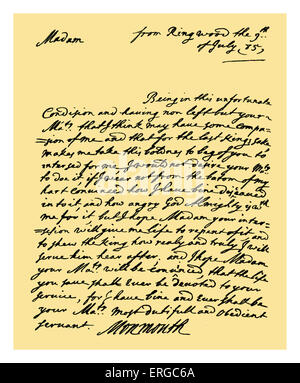 Madam
from Ringwood the 9th
of July 85
Being in this unfortunate
Condision and having non left but your
Maty. that I think may have some Compa-
sion of me and that for the last Kings sake
makes me take this boldnes to beg of you to
intersed for me. I would not desire your Maty
to doe it if I wear not from the botom of my
hart convinced how I have bine disceaved
in to it and how angry God Almighty is
me for it but I hope Madam your inter-
sesion will give me life to repent of it and
to shew the King how realy and truly I will
serve him hear after. and I hope Madam
your Maty. will be convinced that the life
you save shall ever be devoted to your
service, for I have bine and ever shall be
your Maty. most dutifull and obedient
servant Monmouth
alamy stock photo
ERGC6A
www.alamy.com